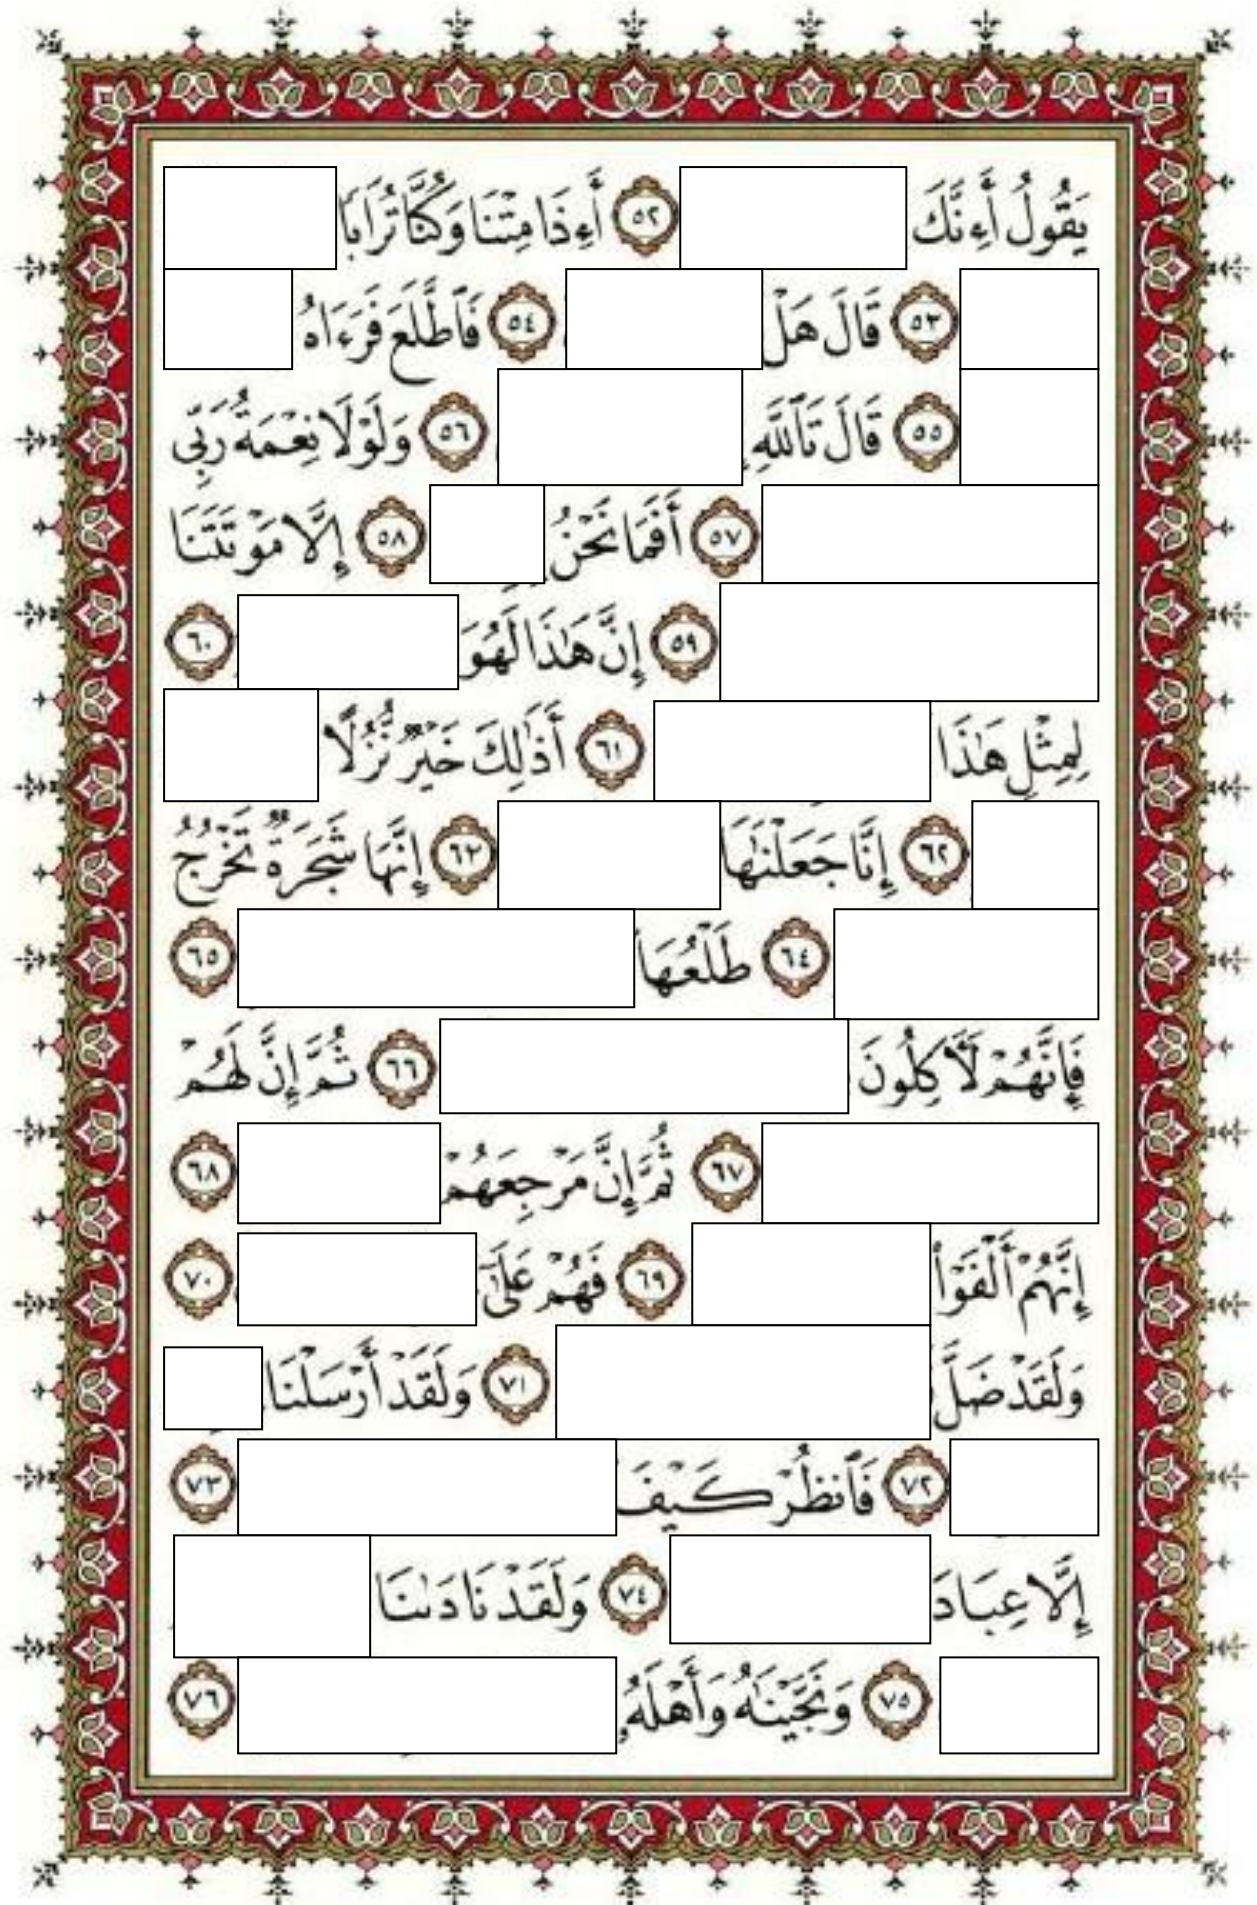 يَقُولُ أَءِنَّكَ ٥٢ أَءِذَا مِتْنَا وَكُنَّا تُرَابًا
٥٣ قَالَ هَلْ ٥٤ فَٱطَّلَعَ فَرَءَاهُ
٥٥ قَالَ تَٱللَّهِ ٥٦ وَلَوْلَا نِعْمَةُ رَبِّى
٥٧ أَفَمَا نَحْنُ ٥٨ إِلَّا مَوْتَتَنَا
٥٩ إِنَّ هَٰذَا لَهُوَ ٦٠
لِمِثْلِ هَٰذَا ٦١ أَذَٰلِكَ خَيْرٌ نُّزُلًا
٦٢ إِنَّا جَعَلْنَٰهَا ٦٣ إِنَّهَا شَجَرَةٌ تَخْرُجُ
٦٤ طَلْعُهَا ٦٥
فَإِنَّهُمْ لَءَاكِلُونَ ٦٦ ثُمَّ إِنَّ لَهُمْ
٦٧ ثُمَّ إِنَّ مَرْجِعَهُمْ ٦٨
إِنَّهُمْ أَلْفَوْا۟ ٦٩ فَهُمْ عَلَىٰٓ ٧٠
وَلَقَدْ ضَلَّ ٧١ وَلَقَدْ أَرْسَلْنَا
٧٢ فَٱنظُرْ كَيْفَ ٧٣
إِلَّا عِبَادَ ٧٤ وَلَقَدْ نَادَىٰنَا
٧٥ وَنَجَّيْنَٰهُ وَأَهْلَهُۥ ٧٦